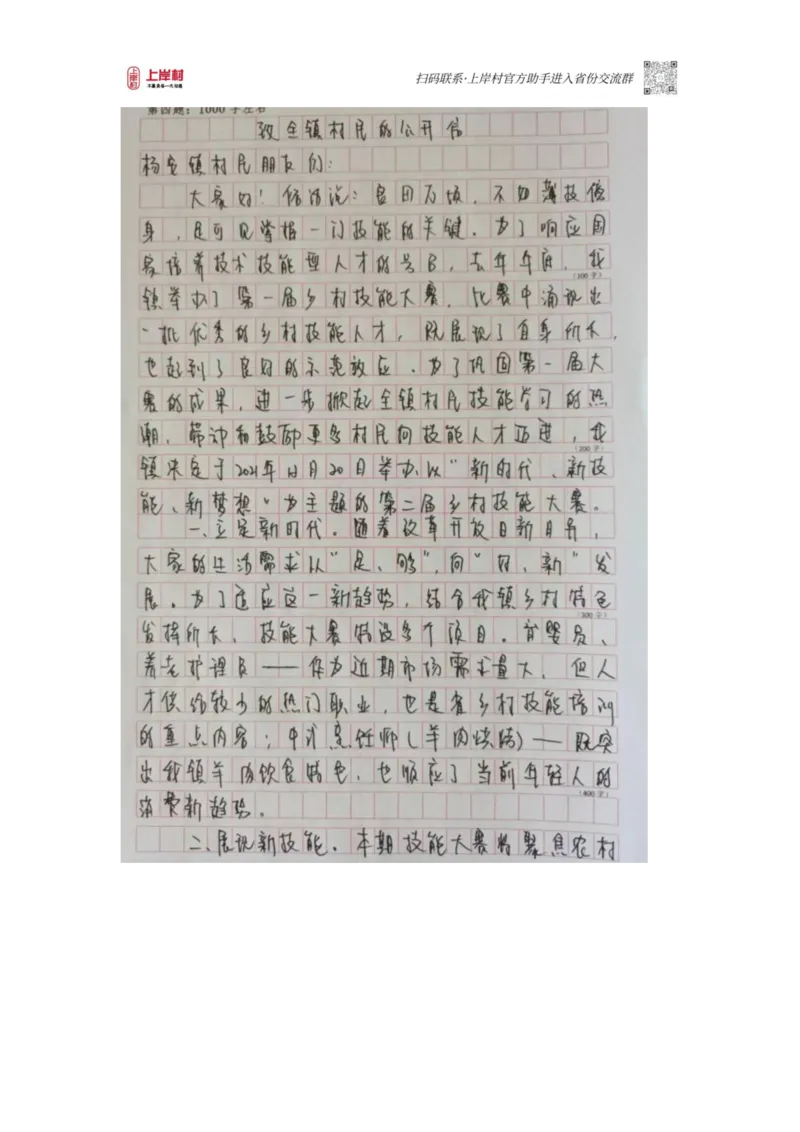 上岸村
上岸村
不辜负每一代知遇
扫码联系·上岸村官方助手进入省份交流群
第四题：1000字左右
致全镇村民的公开信
杨全镇村民朋友们：
大家好！俗话说：良田万顷，不如薄技傍
身，足可见掌握一门技能的关键。为了响应国
家培养技术技能型人才的号召，去年年底，我
（100字）
镇举办了第一届乡村技能大赛，比赛中涌现出
一批优秀的乡村技能人才，既展现了自身所长，
也起到了良好的示范效应。为了巩固第一届大
赛的成果，进一步掀起全镇村民技能学习的热
潮，带动和鼓励更多村民向技能人才迈进，我
（200字）
镇决定于2021年12月20日举办以“新时代、新技
能、新梦想”为主题的第二届乡村技能大赛。
一、立足新时代。随着改革开放日新月异，
大家的生活需求从“足、够”，向“好、新”发
展。为了适应这一新趋势，结合我镇乡村特色
（300字）
发挥所长，技能大赛特设多个项目。育婴员、
养老护理员——作为近期市场需求量大，但人
才供给较少的热门职业，也是省乡村技能培训
的重点内容；中式烹饪师（羊肉烧烤）——既突
出我镇羊肉饮食特色，也顺应了当前年轻人的
（400字）
消费新趋势。
二、展现新技能。本期技能大赛将聚焦农村